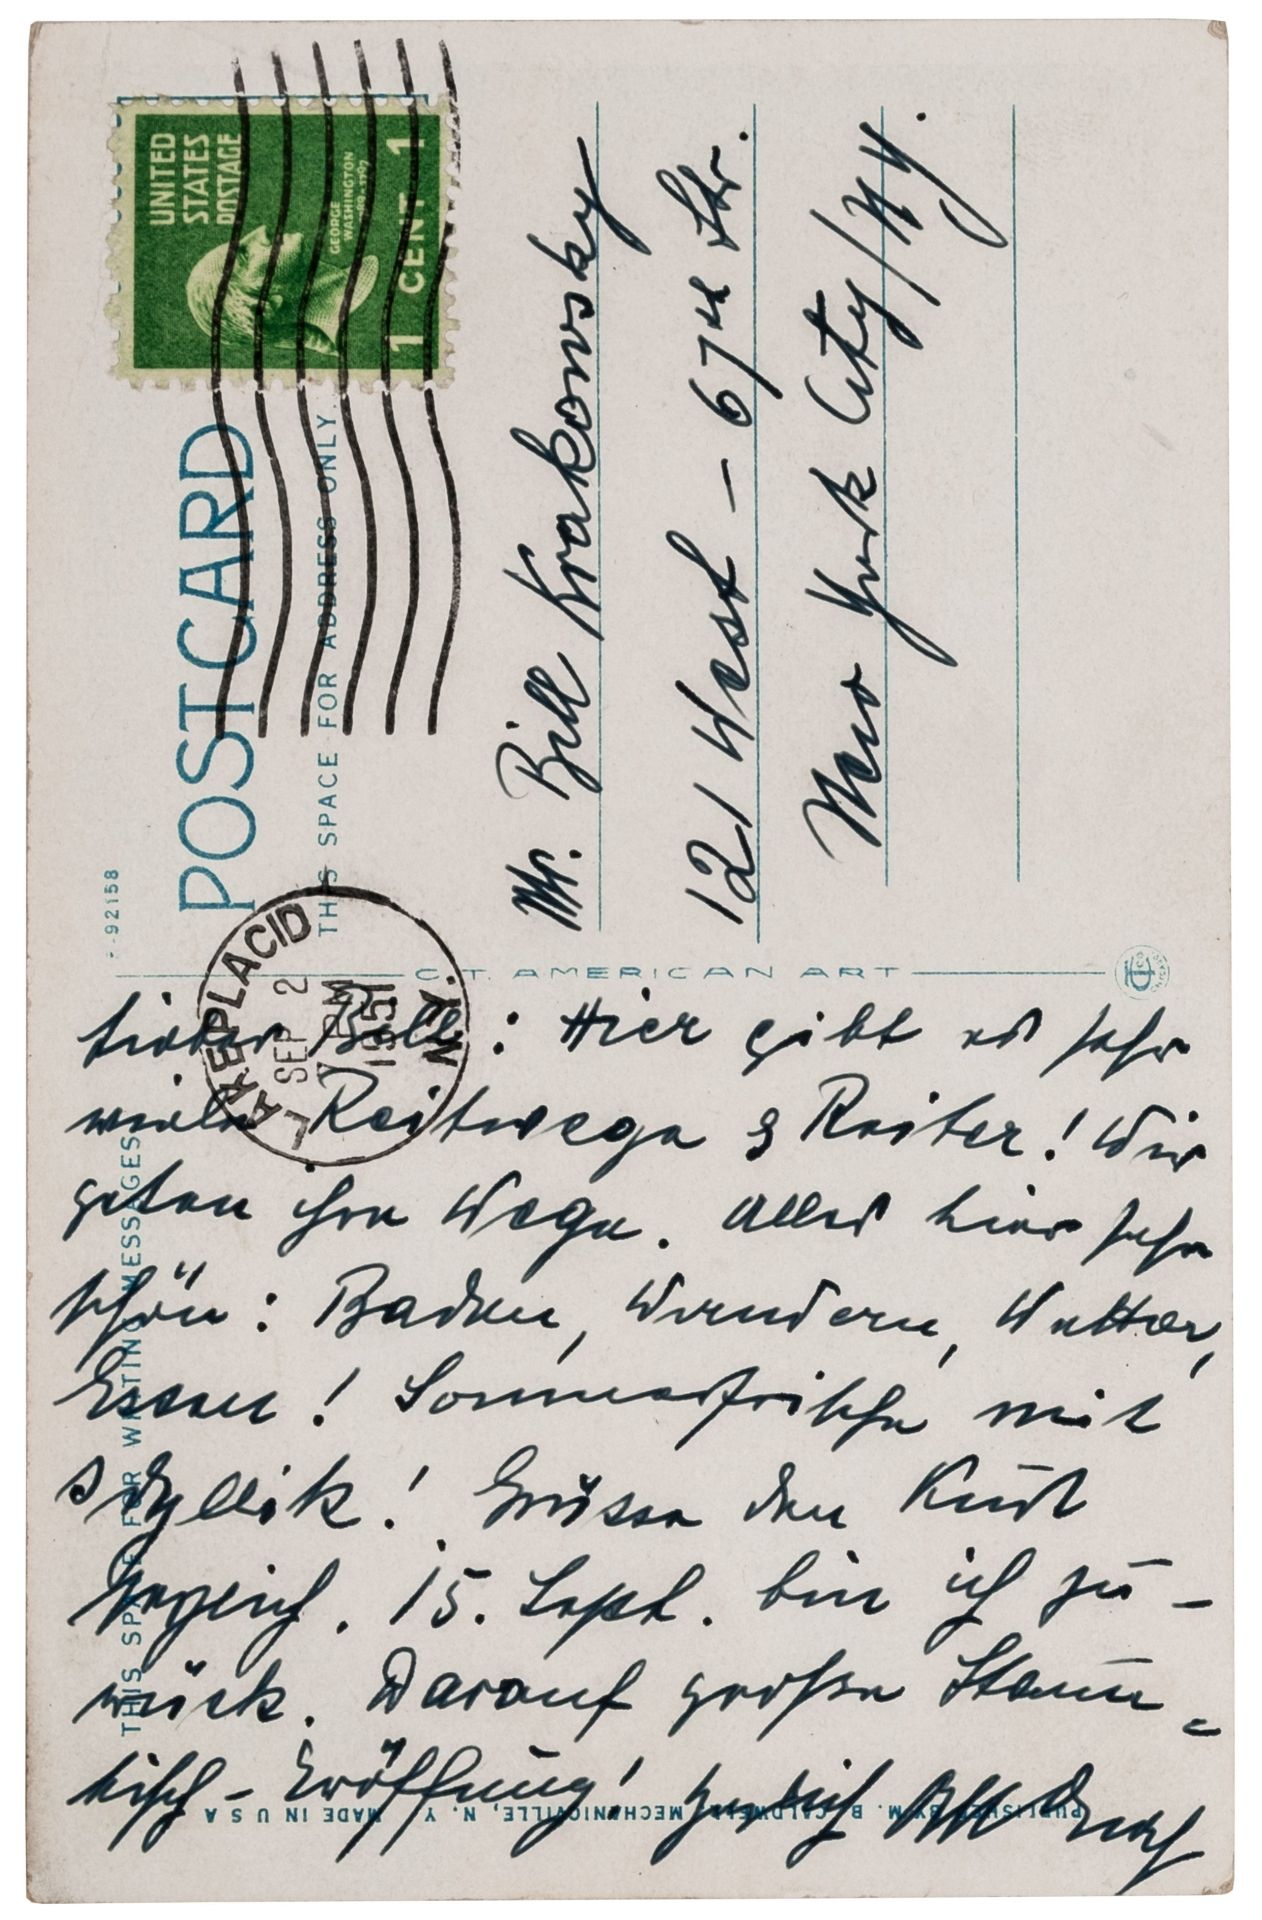 UNITED
STATES
POSTAGE
GEORGE
WASHINGTON
1789-1797
1 CENT 1
POST CARD
THIS SPACE FOR ADDRESS ONLY.
-92158
LAKE PLACID
SEP 2
PM
1951
N.Y.
Mr. Bill Krakowsky
121 West – 67th Str.
New York City/NY.
C.T. AMERICAN ART
Lieber Bill: Hier gibt es sehr
viele Reitwege & Reiter! Wir
gehen ihre Wege. Alles hier sehr
schön: Baden, Wandern, Wetter,
Essen! Sommerfrische mit
Idyllik! Grüsse den
15. Sept. bin ich zu-
rück. Darauf große Stamm-
tisch-Eröffnung!
THIS SPACE FOR WRITING MESSAGES
PUBLISHED BY M. B. CALDWELL, MECHANICVILLE, N. Y. MADE IN U S A